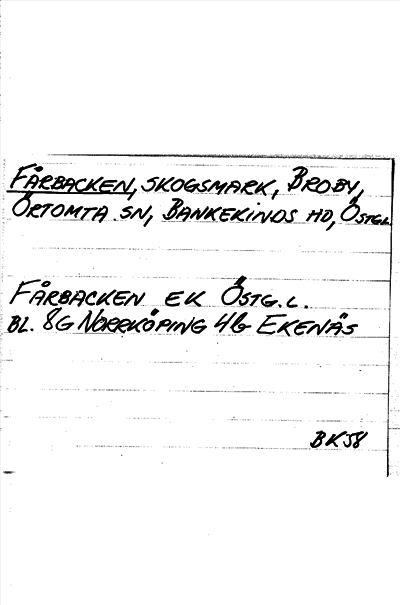 FÅRBACKEN, SKOGSMARK, BROBY,
ÖRTOMTA SN, BANKEKINDS HD, ÖSTG.L.
FÅRBACKEN EK ÖSTG.L.
BL. 8G NORRKÖPING 4b EKENÄS
BK58